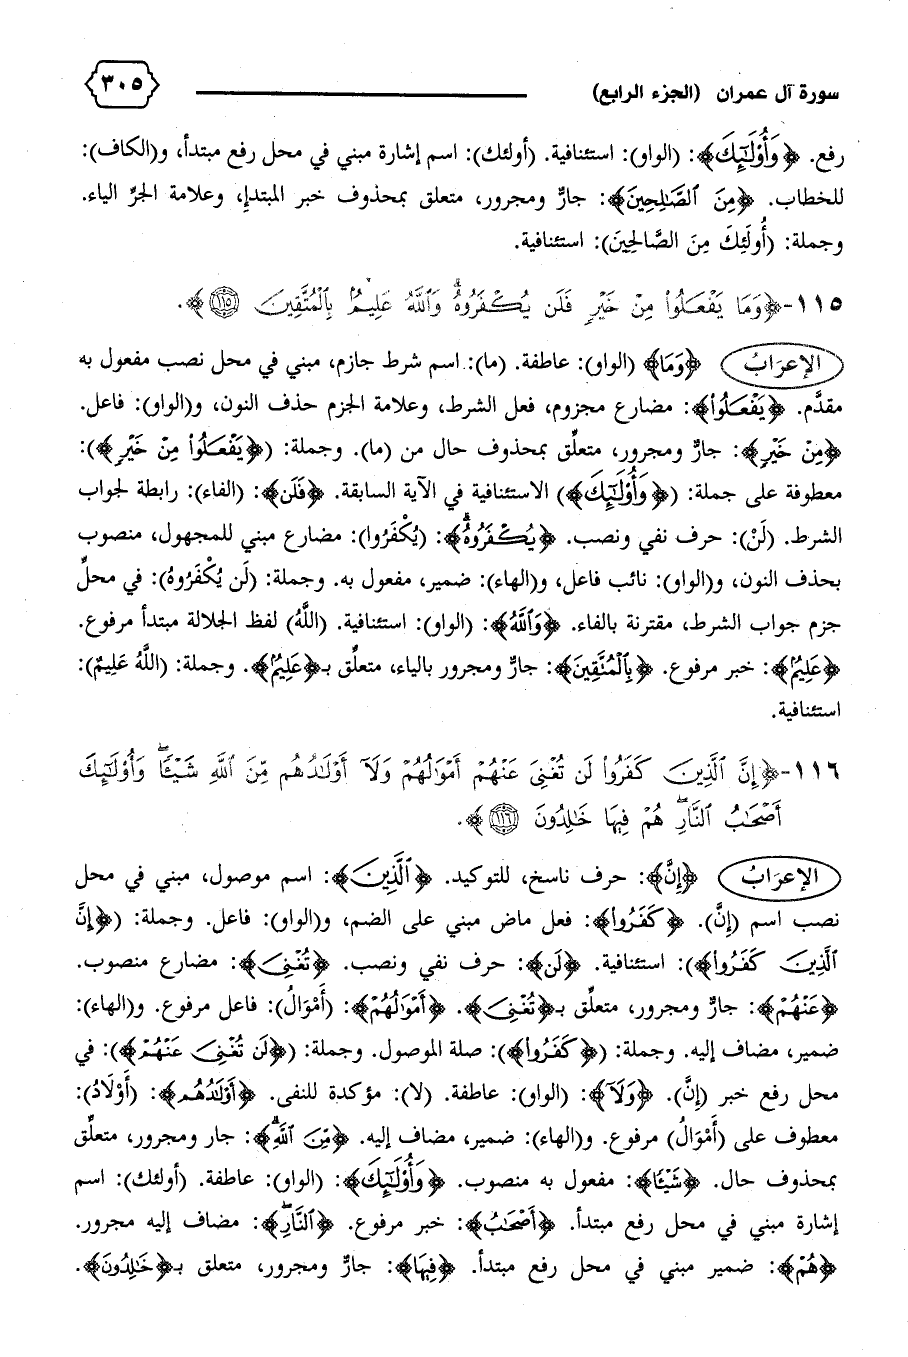 سورة آل عمران (الجزء الرابع)
٣٠٥
رفع. ﴿وَأُوْلَٰٓئِكَ﴾: (الواو): استئنافية. (أولئك): اسم إشارة مبني في محل رفع مبتدأ، و(الكاف):
للخطاب. ﴿مِنَ ٱلصَّٰلِحِينَ﴾: جارٌّ ومجرور، متعلق بمحذوف خبر المبتدإ، وعلامة الجرِّ الياء.
وجملة: (أُولَئِكَ مِنَ الصَّالِحِينَ): استئنافية.
١١٥-﴿وَمَا يَفْعَلُوا۟ مِنْ خَيْرٍ فَلَن يُكْفَرُوهُ ۗ وَٱللَّهُ عَلِيمٌۢ بِٱلْمُتَّقِينَ ١١٥﴾.
الإعرَابُ ﴿وَمَا﴾ (الواو): عاطفة. (ما): اسم شرط جازم، مبني في محل نصب مفعول به
مقدَّم. ﴿يَفْعَلُوا۟﴾: مضارع مجزوم، فعل الشرط، وعلامة الجزم حذف النون، و(الواو): فاعل.
﴿مِنْ خَيْرٍ﴾: جارٌّ ومجرور، متعلِّق بمحذوف حال من (ما). وجملة: (﴿يَفْعَلُوا۟ مِنْ خَيْرٍ﴾):
معطوفة على جملة: (﴿وَأُوْلَٰٓئِكَ﴾) الاستئنافية في الآية السابقة. ﴿فَلَن﴾: (الفاء): رابطة لجواب
الشرط. (لَنْ): حرف نفي ونصب. ﴿يُكْفَرُوهُ ۗ﴾: (يُكْفَرُوا): مضارع مبني للمجهول، منصوب
بحذف النون، و(الواو): نائب فاعل، و(الهاء): ضمير، مفعول به. وجملة: (لَن يُكْفَرُوهُ): في محلِّ
جزم جواب الشرط، مقترنة بالفاء. ﴿وَٱللَّهُ﴾: (الواو): استئنافية. (اللَّهُ) لفظ الجلالة مبتدأ مرفوع.
﴿عَلِيمٌۢ﴾: خبر مرفوع. ﴿بِٱلْمُتَّقِينَ﴾: جارٌّ ومجرور بالياء، متعلِّق بـ﴿عَلِيمٌۢ﴾. وجملة: (اللَّهُ عَلِيمٌ):
استئنافية.
١١٦-﴿إِنَّ ٱلَّذِينَ كَفَرُوا۟ لَن تُغْنِىَ عَنْهُمْ أَمْوَٰلُهُمْ وَلَآ أَوْلَٰدُهُم مِّنَ ٱللَّهِ شَيْـًٔا ۖ وَأُوْلَٰٓئِكَ
أَصْحَٰبُ ٱلنَّارِ ۖ هُمْ فِيهَا خَٰلِدُونَ ١١٦﴾.
الإعرَابُ ﴿إِنَّ﴾: حرف ناسخ، للتوكيد. ﴿ٱلَّذِينَ﴾: اسم موصول، مبني في محل
نصب اسم (إِنَّ). ﴿كَفَرُوا۟﴾: فعل ماض مبني على الضم، و(الواو): فاعل. وجملة: (﴿إِنَّ
ٱلَّذِينَ كَفَرُوا۟﴾): استئنافية. ﴿لَن﴾: حرف نفي ونصب. ﴿تُغْنِىَ﴾: مضارع منصوب.
﴿عَنْهُمْ﴾: جارٌّ ومجرور، متعلِّق بـ﴿تُغْنِىَ﴾. ﴿أَمْوَٰلُهُمْ﴾: (أَمْوَالُ): فاعل مرفوع. و(الهاء):
ضمير، مضاف إليه. وجملة: (﴿كَفَرُوا۟﴾): صلة الموصول. وجملة: (﴿لَن تُغْنِىَ عَنْهُمْ﴾): في
محل رفع خبر (إِنَّ). ﴿وَلَآ﴾: (الواو): عاطفة. (لا): مؤكدة للنفى. ﴿أَوْلَٰدُهُم﴾: (أَوْلَادُ):
معطوف على (أَمْوَالُ) مرفوع. و(الهاء): ضمير، مضاف إليه. ﴿مِّنَ ٱللَّهِ﴾: جار ومجرور، متعلِّق
بمحذوف حال. ﴿شَيْـًٔا﴾: مفعول به منصوب. ﴿وَأُوْلَٰٓئِكَ﴾: (الواو): عاطفة. (أولئك): اسم
إشارة مبني في محل رفع مبتدأ. ﴿أَصْحَٰبُ﴾: خبر مرفوع. ﴿ٱلنَّارِ ۖ﴾: مضاف إليه مجرور.
﴿هُمْ﴾: ضمير مبني في محل رفع مبتدأ. ﴿فِيهَا﴾: جارٌّ ومجرور، متعلق بـ﴿خَٰلِدُونَ﴾.